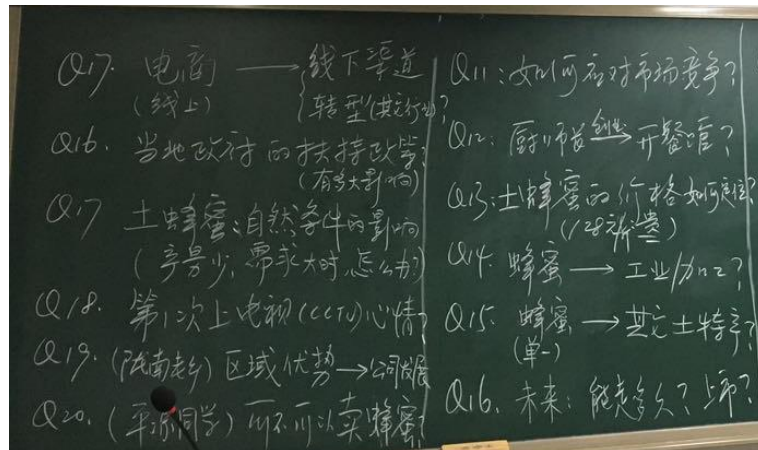 Q17. 电商 → 线下渠道
(线上) 转型(其它行业)?
Q16. 当地政府的扶持政策?
(有多大影响)
Q17 土蜂蜜:自然条件的影响
(产量少,需求大时,怎么办?)
Q18. 第1次上电视(CCTV)心情?
Q19. (陇南老乡)区域优势→公司发展
Q20. (平凉同学)可不可以卖蜂蜜?
Q11:如何应对市场竞争?
Q12:厨师长 创业→ 开餐馆?
Q13:土蜂蜜的价格如何定位?
(128元/斤 贵)
Q14. 蜂蜜 → 工业/加工?
Q15. 蜂蜜 → 其它土特产?
(单一)
Q16. 未来:能走多久?上市?